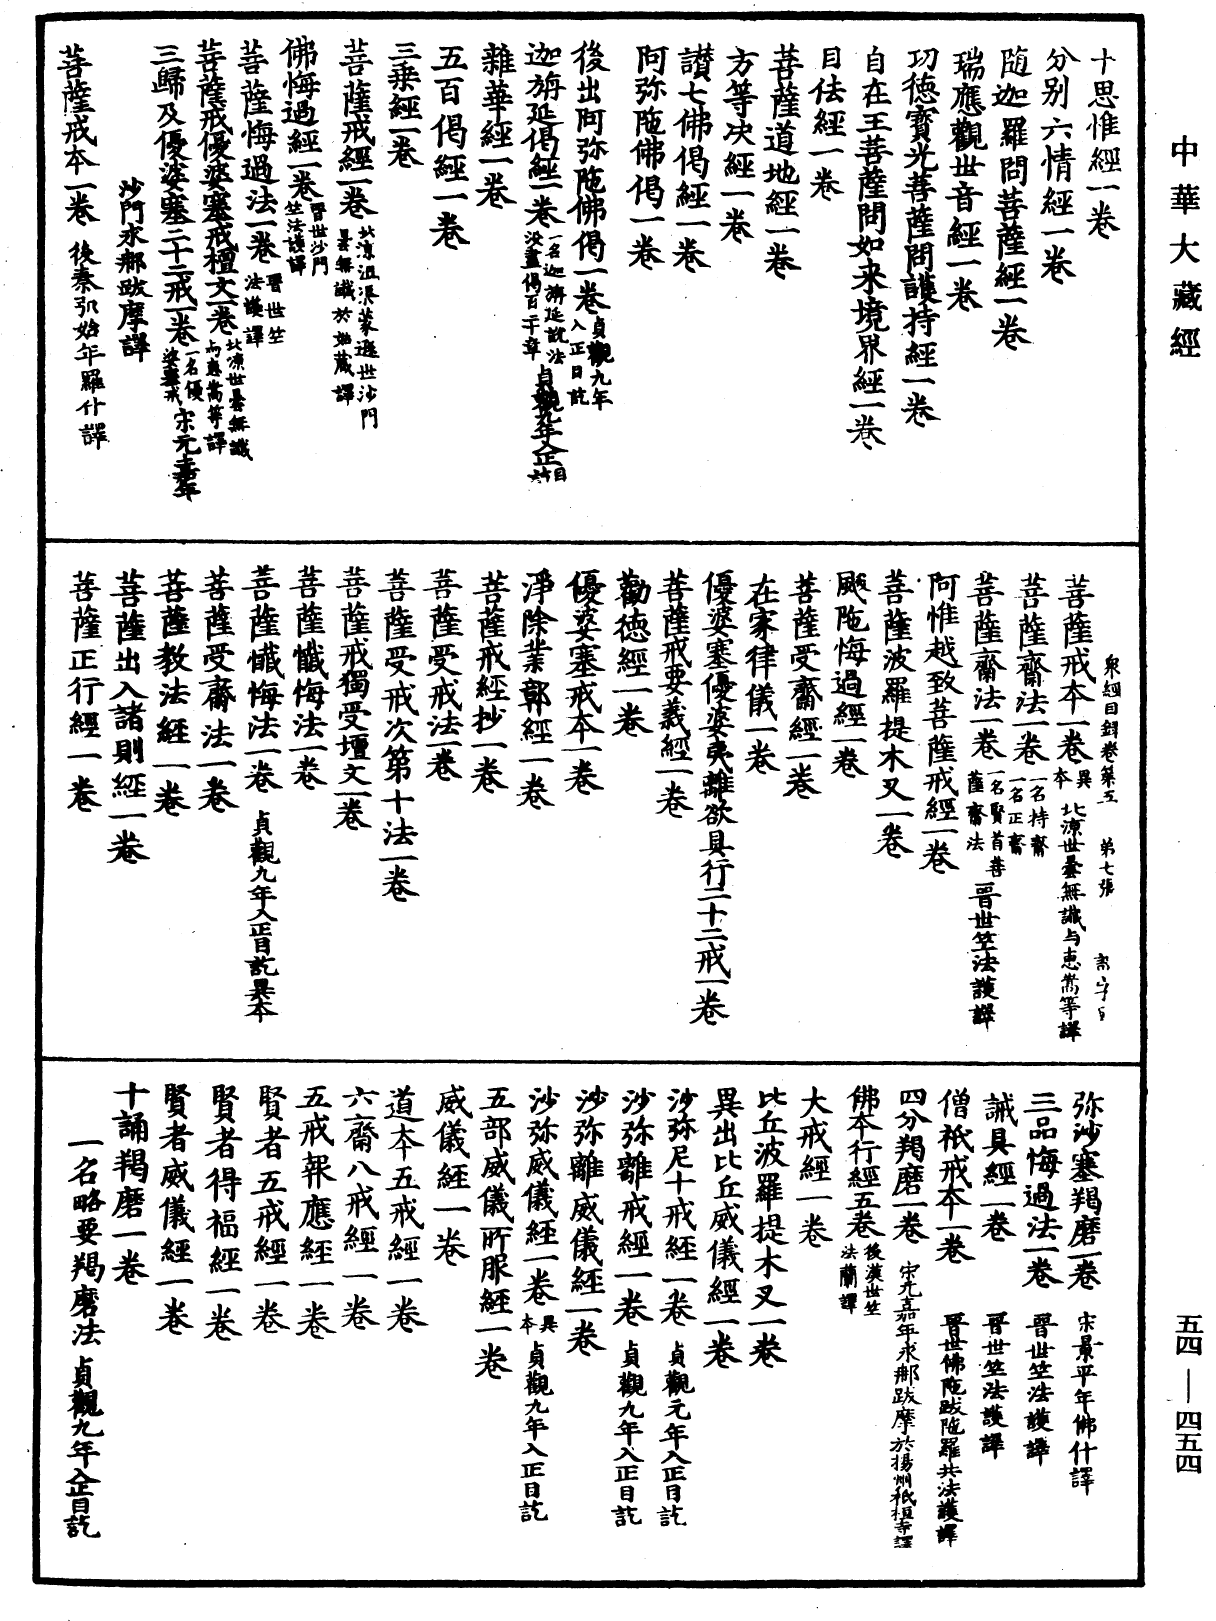 中華大藏經
十思惟經一卷
分別六情經一卷
随迦羅問菩薩經一卷
瑞應觀世音經一卷
功德寶光菩薩問護持經一卷
自在王菩薩問如来境界經一卷
目佉經一卷
菩薩道地經一卷
方等决經一卷
讃七佛偈經一卷
阿弥陁佛偈一卷
後出阿弥陁佛偈一卷 貞觀九年入正目訖
迦旃延偈經一卷 一名迦旃延說法没盡偈百二十章 貞觀九年入正目訖
雜華經一卷
五百偈經一卷
三乗經一卷
菩薩戒經一卷 北凉沮渠蒙遜世沙門曇無讖於姑蔵譯
佛悔過經一卷 晋世沙門竺法護譯
菩薩悔過法一卷 晋世竺法護譯
菩薩戒優婆塞戒檀文一卷 北凉世曇無讖与惠嵩等譯
三歸及優婆塞二十二戒一卷 一名優婆塞戒 宋元嘉年
沙門求那跋摩譯
菩薩戒本一卷 後秦弘始年羅什譯
衆經目録卷第五 第七張
菩薩戒本一卷 異本 北凉世曇無讖与惠嵩等譯
菩薩齋法一卷 一名持齋一名正齋
菩薩齋法一卷 一名賢首菩薩齋法 晋世竺法護譯
阿惟越致菩薩戒經一卷
菩薩波羅提木叉一卷
颰陁悔過經一卷
菩薩受齋經一卷
在家律儀一卷
優婆塞優婆夷離欲具行二十二戒一卷
菩薩戒要義經一卷
勸德經一卷
優婆塞戒本一卷
淨除業鄣經一卷
菩薩戒經抄一卷
菩薩受戒法一卷
菩薩受戒次第十法一卷
菩薩戒獨受壇文一卷
菩薩懺悔法一卷
菩薩懺悔法一卷 貞觀九年入正目訖異本
菩薩受齋法一卷
菩薩教法經一卷
菩薩出入諸則經一卷
菩薩正行經一卷
弥沙塞羯磨一卷 宋景平年佛什譯
三品悔過法一卷 晋世竺法護譯
誡具經一卷 晋世竺法護譯
僧祇戒本一卷 晋世佛陁跋陁羅共法護譯
四分羯磨一卷 宋元嘉年求那跋摩於揚州祇桓寺譯
佛本行經五卷 後漢世竺法蘭譯
大戒經一卷
比丘波羅提木叉一卷
異出比丘威儀經一卷
沙弥尼十戒經一卷 貞觀元年入正目訖
沙弥離戒經一卷 貞觀九年入正目訖
沙弥離威儀經一卷
沙弥威儀經一卷 異本 貞觀九年入正目訖
五部威儀所服經一卷
威儀經一卷
道本五戒經一卷
六齋八戒經一卷
五戒報應經一卷
賢者五戒經一卷
賢者得福經一卷
賢者威儀經一卷
十誦羯磨一卷
一名略要羯磨法 貞觀九年入正目訖
五四—四五四